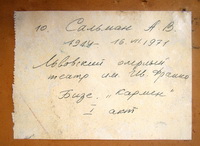 10. Сальман А. В.
1924- 16.III 1971
Львовский оперный
театр им. Ив. Франко
Бизе „Кармен"
I акт